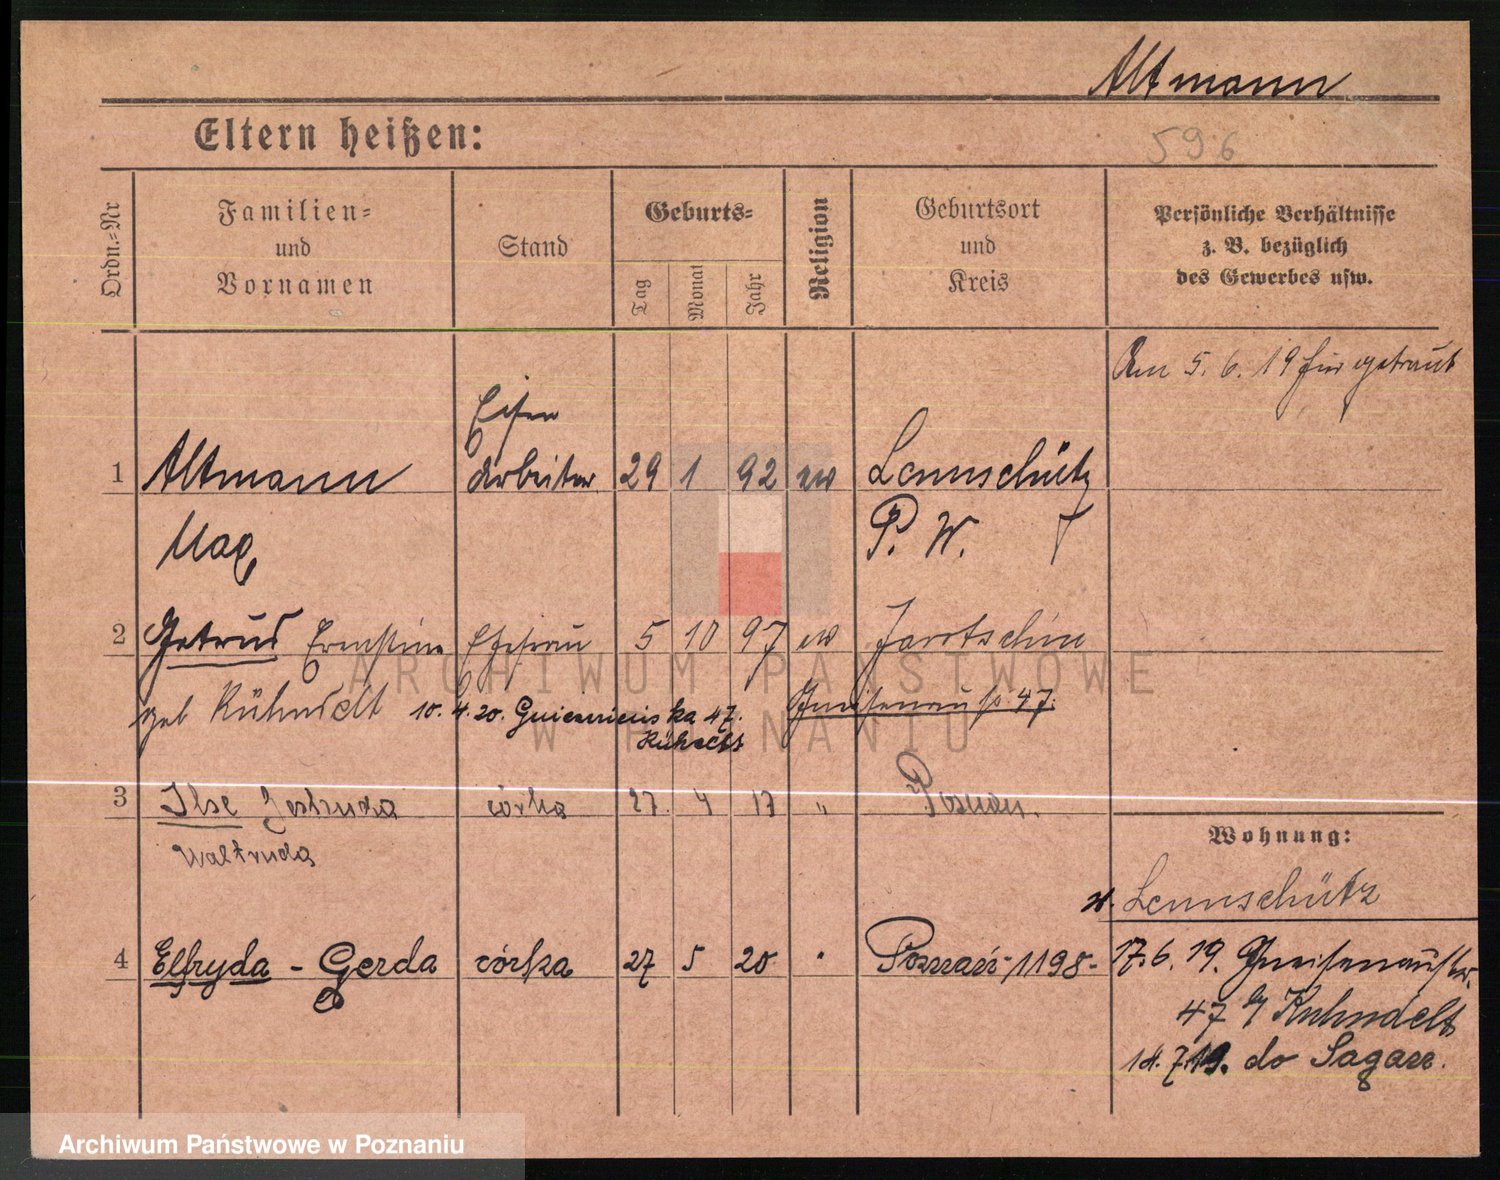 Altmann
Eltern heißen:
596
Ordn.-Nr
Familien-
und
Vornamen
Stand
Geburts-
Tag
Monat
Jahr
Religion
Geburtsort
und
Kreis
Persönliche Verhältnisse
z. B. bezüglich
des Gewerbes usw.
Am 5. 6. 19 hier getraut
Eisen
1 Altmann arbeiter 29 1 92 ev Lennschütz
Max P. W.
2 Getrud Ernstine Ehefrau 5 10 97 ev Jarotschin
geb Kühndelt 10. 4. 20. 47. Gneisenaustr 47.
3 Ilse Gertruda córka 27. 4 17 " Posnan.
Waltruda
Wohnung:
v. Lennschütz
4 Elfryda - Gerda córka 27 5 20 Poznań - 1198 -
17. 6. 19. Gneisenaustr.
47 b/ Kuhndelt
14. 7. 19. do Sagan.
ARCHIWUM PAŃSTWOWE
W POZNANIU
Archiwum Państwowe w Poznaniu